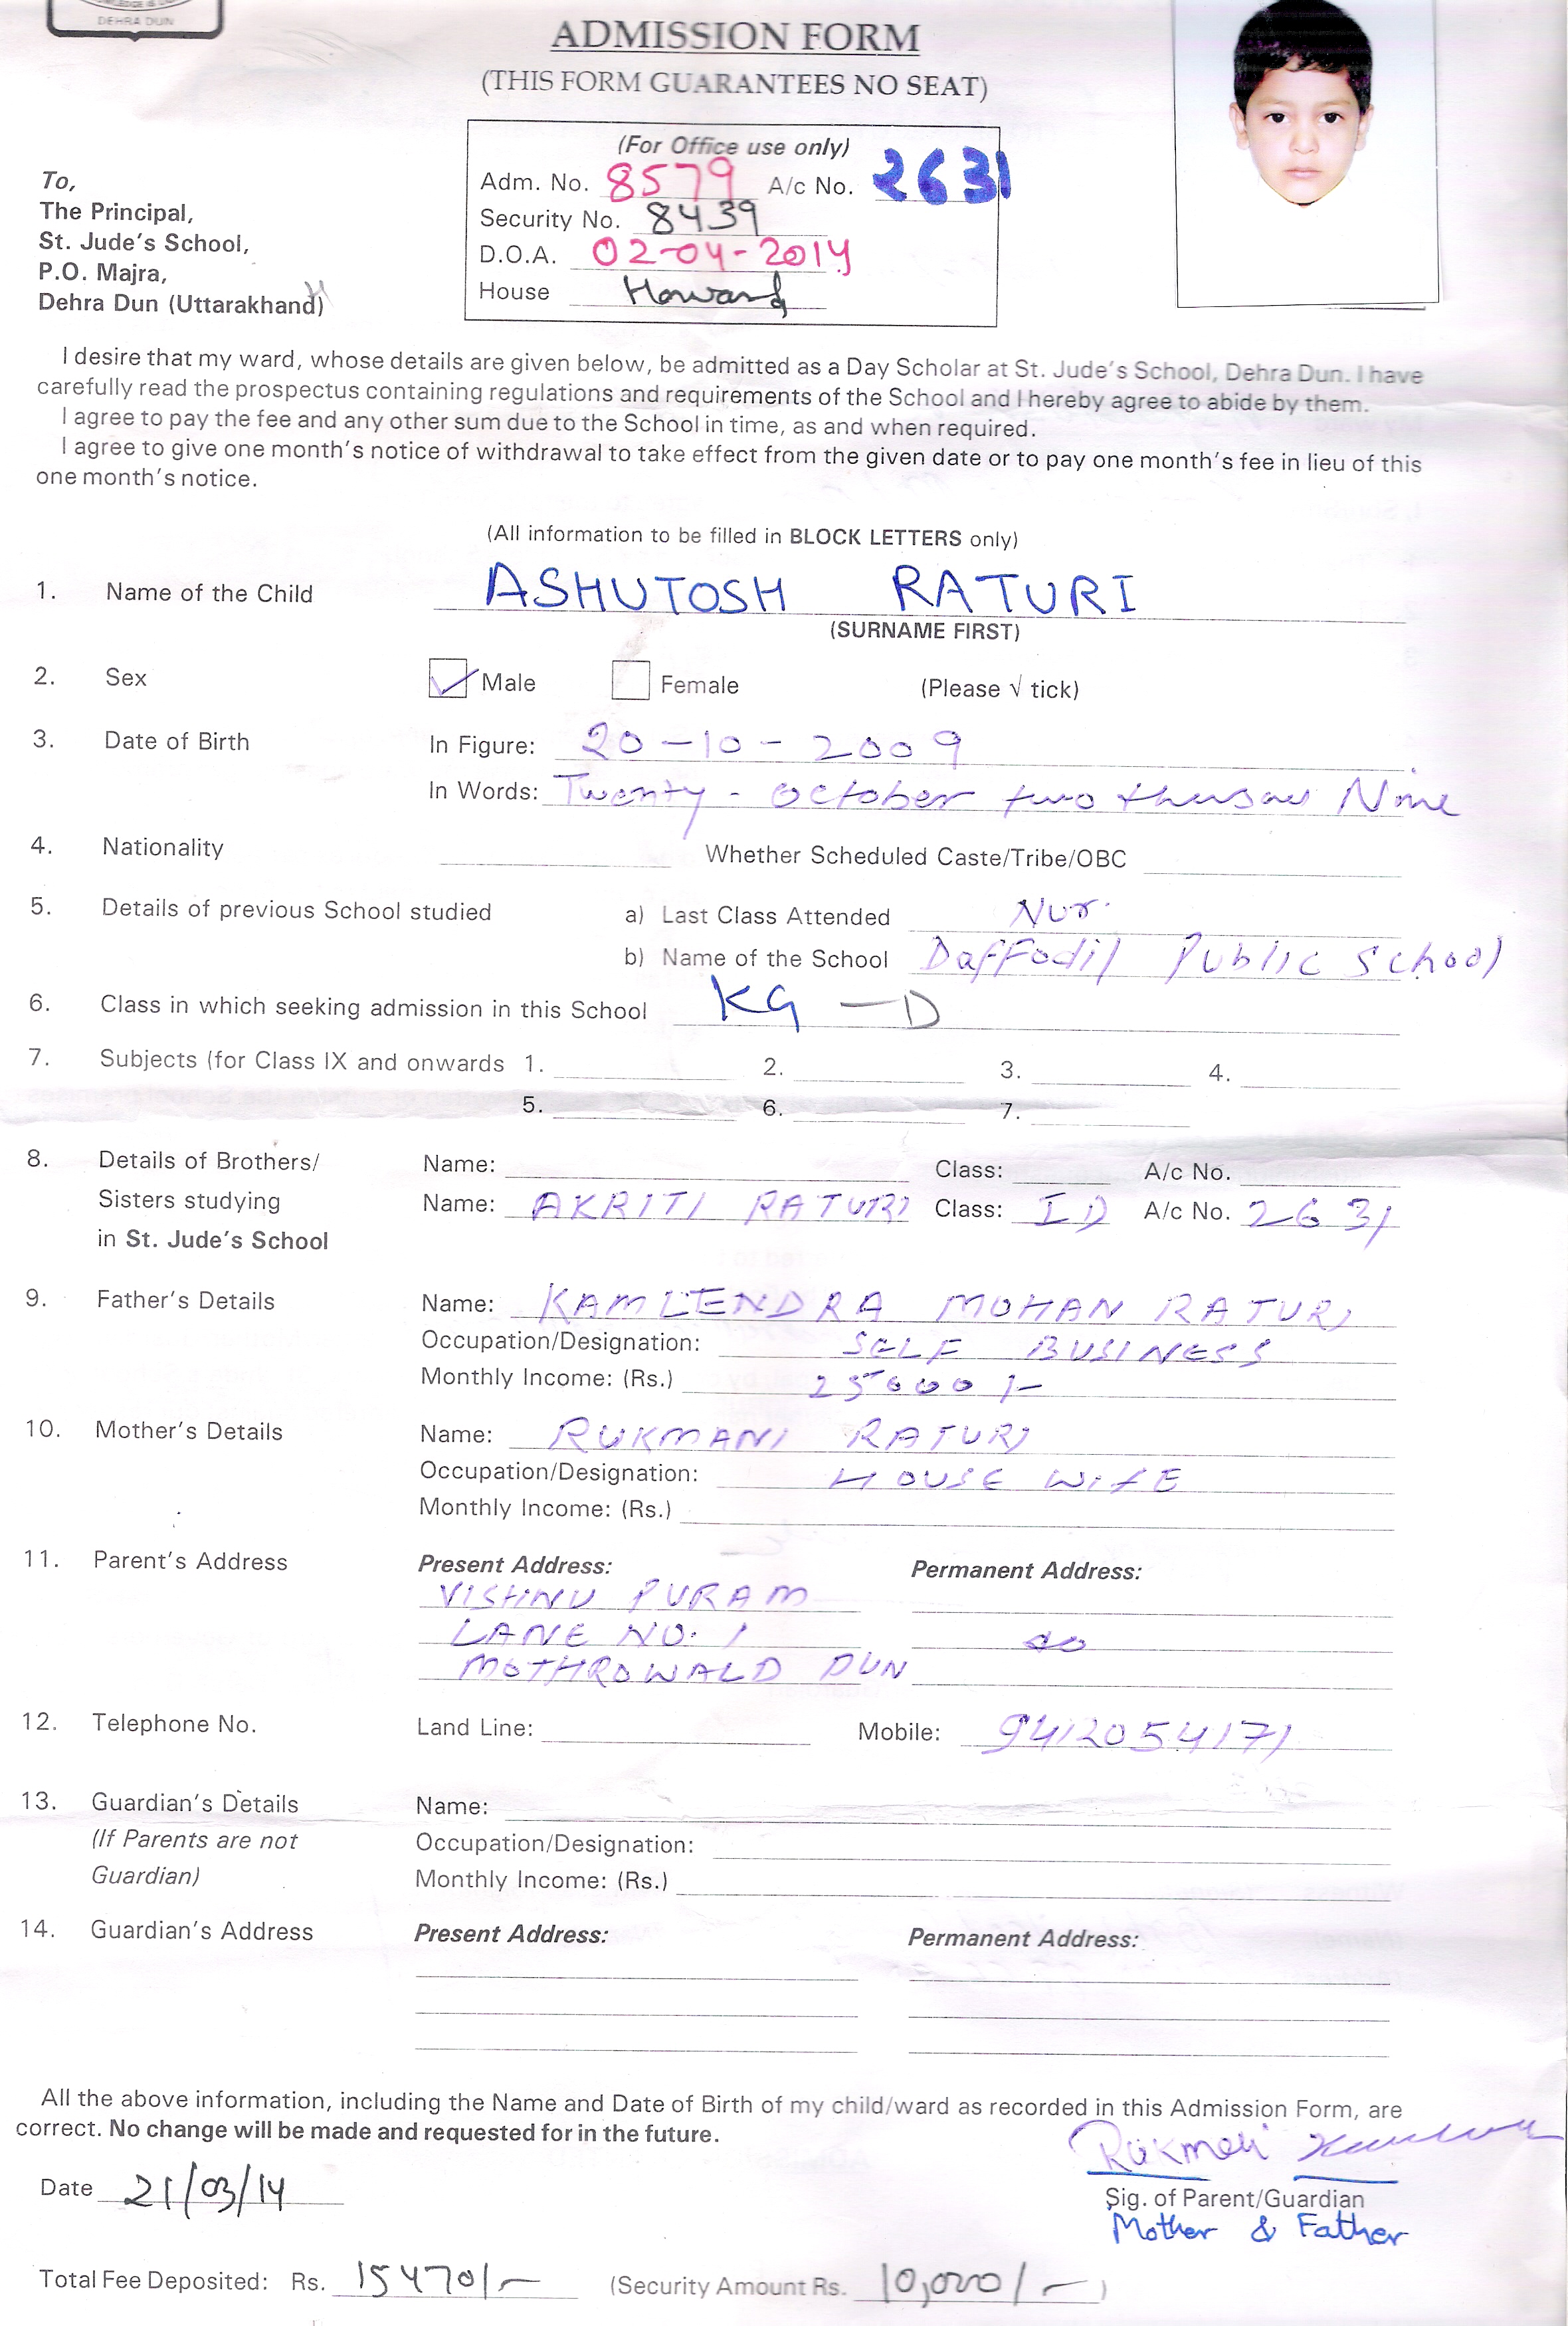 DEHRA DUN
ADMISSION FORM
(THIS FORM GUARANTEES NO SEAT)
(For Office use only)
Adm. No. 8579 A/c No. 2631
Security No. 8439
D.O.A. 02-04-2014
House Howard
To,
The Principal,
St. Jude's School,
P.O. Majra,
Dehra Dun (Uttarakhand)
I desire that my ward, whose details are given below, be admitted as a Day Scholar at St. Jude's School, Dehra Dun. I have
carefully read the prospectus containing regulations and requirements of the School and I hereby agree to abide by them.
I agree to pay the fee and any other sum due to the School in time, as and when required.
I agree to give one month's notice of withdrawal to take effect from the given date or to pay one month's fee in lieu of this
one month's notice.
(All information to be filled in BLOCK LETTERS only)
1. Name of the Child ASHUTOSH RATURI
(SURNAME FIRST)
2. Sex ✓ Male Female (Please √ tick)
3. Date of Birth In Figure: 20-10-2009
In Words: Twenty - October two thusau Nine
4. Nationality Whether Scheduled Caste/Tribe/OBC
5. Details of previous School studied a) Last Class Attended Nur.
b) Name of the School Daffodil Public School
6. Class in which seeking admission in this School KG - D
7. Subjects (for Class IX and onwards 1. 2. 3. 4.
5. 6. 7.
8. Details of Brothers/ Name: Class: A/c No.
Sisters studying Name: AKRITI RATURI Class: ID A/c No. 2631
in St. Jude's School
9. Father's Details Name: KAMLENDRA MOHAN RATURI
Occupation/Designation: SELF BUSINESS
Monthly Income: (Rs.) 25000/-
10. Mother's Details Name: RUKMANI RATURI
Occupation/Designation: HOUSE WIFE
Monthly Income: (Rs.)
11. Parent's Address Present Address: Permanent Address:
VISHNU PURAM
LANE NO. 1 do
MOTHROWALD DUN
12. Telephone No. Land Line: Mobile: 9412054171
13. Guardian's Details Name:
(If Parents are not Occupation/Designation:
Guardian) Monthly Income: (Rs.)
14. Guardian's Address Present Address: Permanent Address:
All the above information, including the Name and Date of Birth of my child/ward as recorded in this Admission Form, are
correct. No change will be made and requested for in the future.
Date 21/03/14
Sig. of Parent/Guardian
Mother & Father
Total Fee Deposited: Rs. 15470/- (Security Amount Rs. 10,000/-)